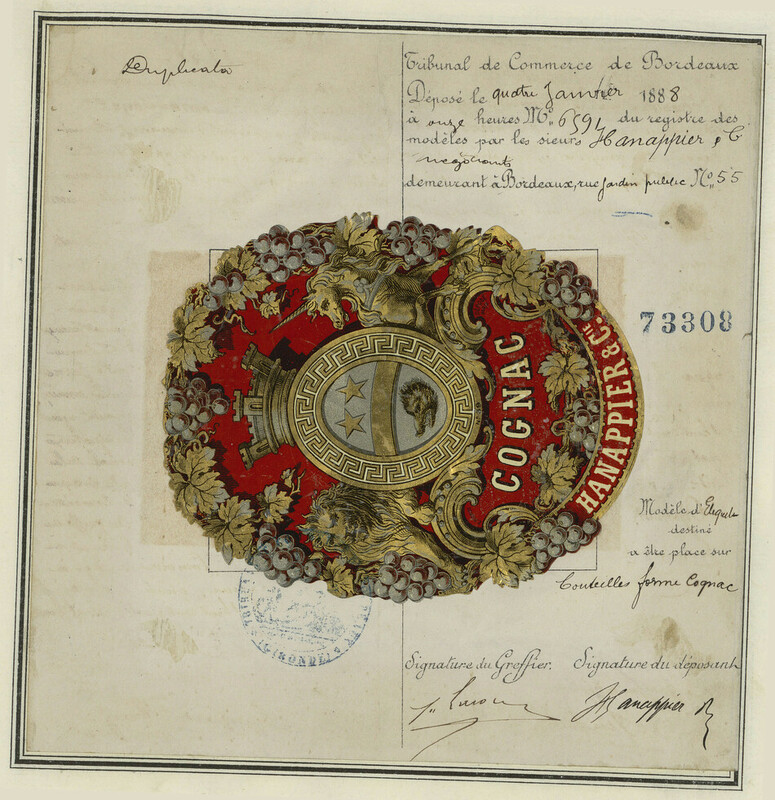 Duplicata
Tribunal de Commerce de Bordeaux
Déposé le quatre Janvier 1888
à onze heures No. 6591 du registre des
modèles par les sieurs Hanappier & C
négociants
demeurant à Bordeaux, rue Jardin public No. 55
73308
COGNAC
HANAPPIER & CIE
Modèle d'Etiquette
destiné
a être place sur
bouteilles forme Cognac
(GIRONDE)
Signature du Greffier. Signature du déposant
Hanappier